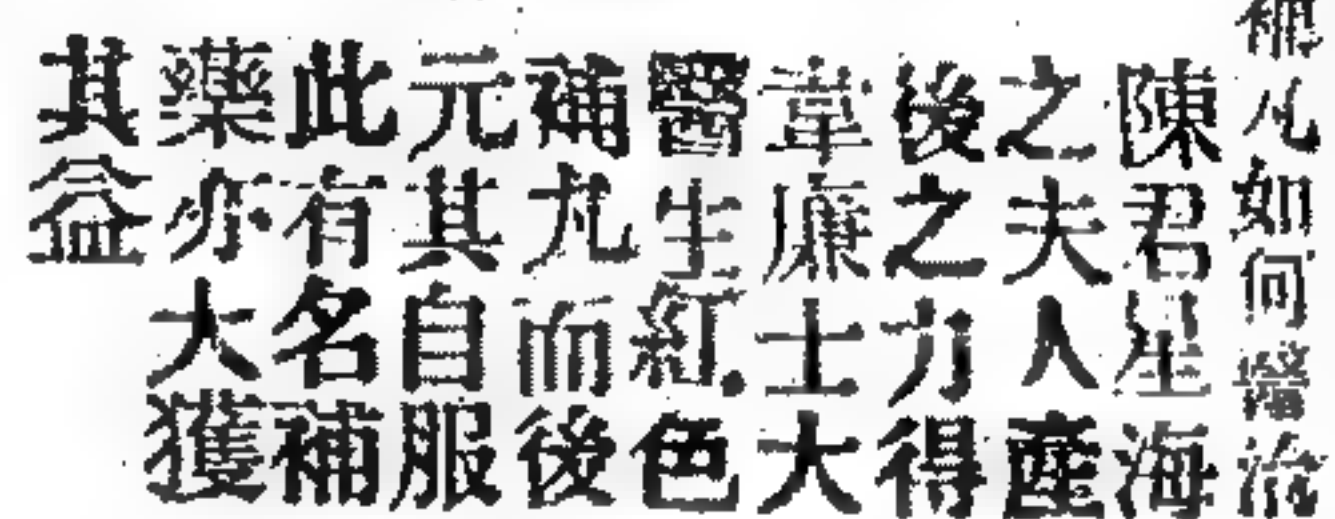 補丸如何醫治
陳君星海
之夫人產
後乏力得
韋廉士大
醫生紅色
補丸而復
元其自服
此有名補
藥亦大獲
其益